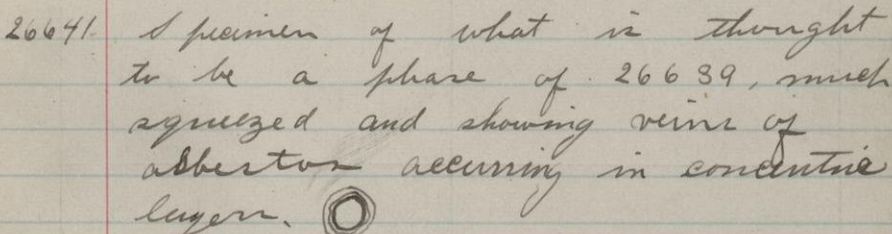 26641. Specimen of what is thought
to be a phase of 26639, much
squeezed and showing veins of
asbestos occurring in concentric
layers.